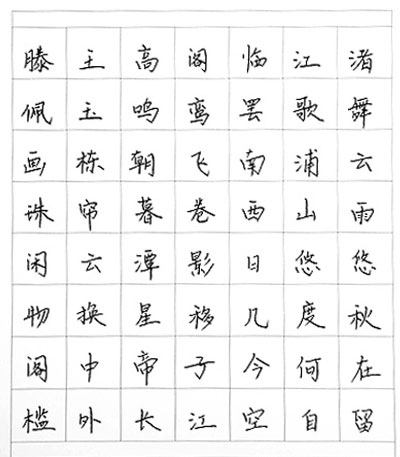 滕王高阁临江渚
佩玉鸣鸾罢歌舞
画栋朝飞南浦云
珠帘暮卷西山雨
闲云潭影日悠悠
物换星移几度秋
阁中帝子今何在
槛外长江空自留